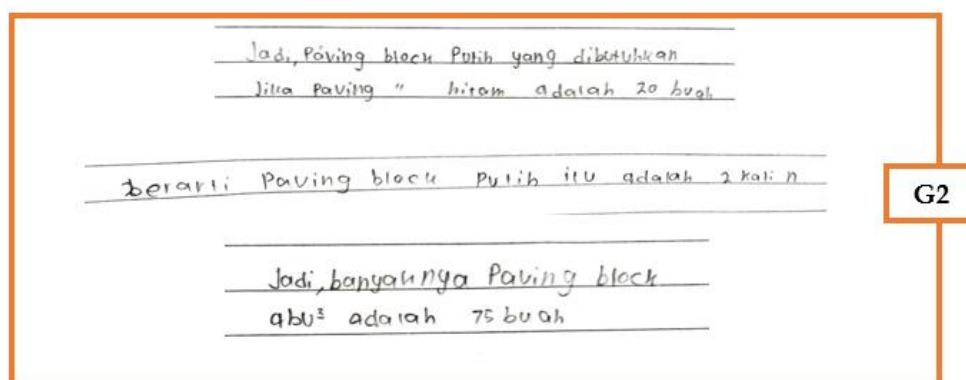 Jadi, Paving block Putih yang dibutuhkan
Jika Paving " hitam adalah 20 buah
berarti Paving block Putih itu adalah 2 kali n
G2
Jadi, banyaknya Paving block
abu² adalah 75 buah